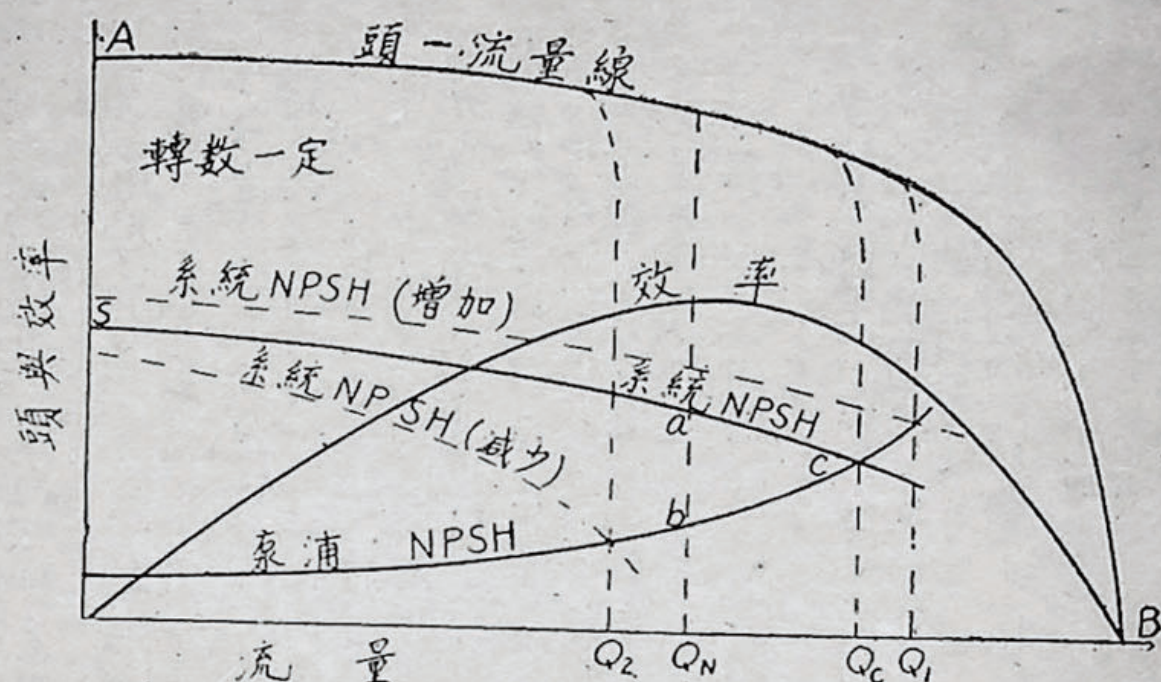 A
頭－流量線
轉數一定
頭與效率
系統NPSH(增加)
效率
S
系統NPSH(減少)
系統NPSH
a
c
b
泵浦 NPSH
B
流量
Q2 QN QC Q1